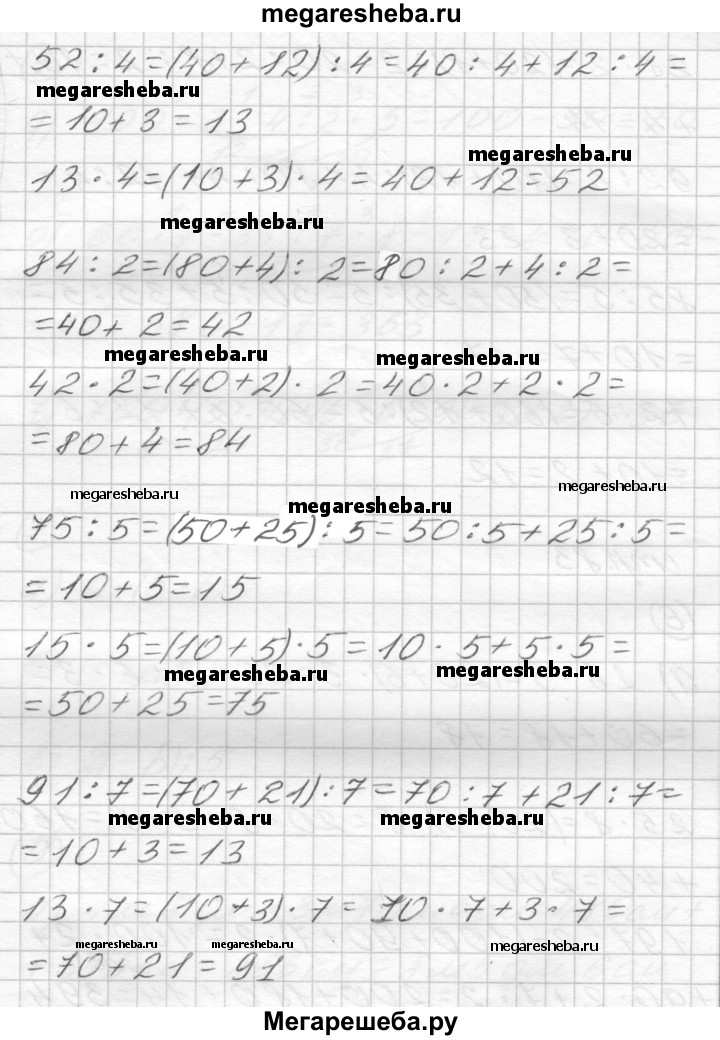 megaresheba.ru
52 : 4 = (40 + 12) : 4 = 40 : 4 + 12 : 4 =
megaresheba.ru
= 10 + 3 = 13
megaresheba.ru
13 · 4 = (10 + 3) · 4 = 40 + 12 = 52
megaresheba.ru
84 : 2 = (80 + 4) : 2 = 80 : 2 + 4 : 2 =
= 40 + 2 = 42
megaresheba.ru megaresheba.ru
42 · 2 = (40 + 2) · 2 = 40 · 2 + 2 · 2 =
= 80 + 4 = 84
megaresheba.ru megaresheba.ru
megaresheba.ru
75 : 5 = (50 + 25) : 5 = 50 : 5 + 25 : 5 =
= 10 + 5 = 15
15 · 5 = (10 + 5) · 5 = 10 · 5 + 5 · 5 =
megaresheba.ru megaresheba.ru
= 50 + 25 = 75
91 : 7 = (70 + 21) : 7 = 70 : 7 + 21 : 7 =
megaresheba.ru megaresheba.ru
= 10 + 3 = 13
13 · 7 = (10 + 3) · 7 = 10 · 7 + 3 · 7 =
megaresheba.ru megaresheba.ru megaresheba.ru
= 70 + 21 = 91
Мегарешеба.ру